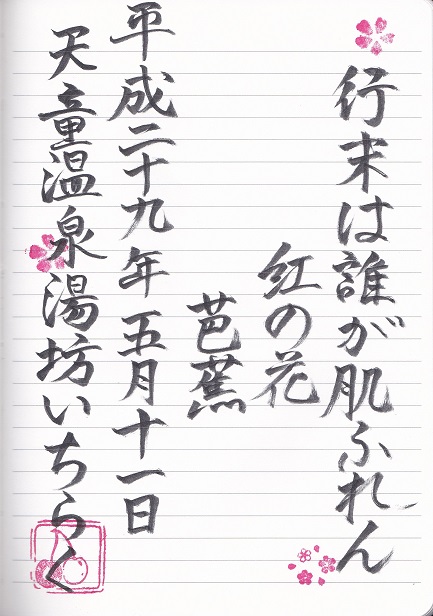 行末は誰が肌ふれん
紅の花
芭蕉
平成二十九年五月十一日
天童温泉湯坊いちらく